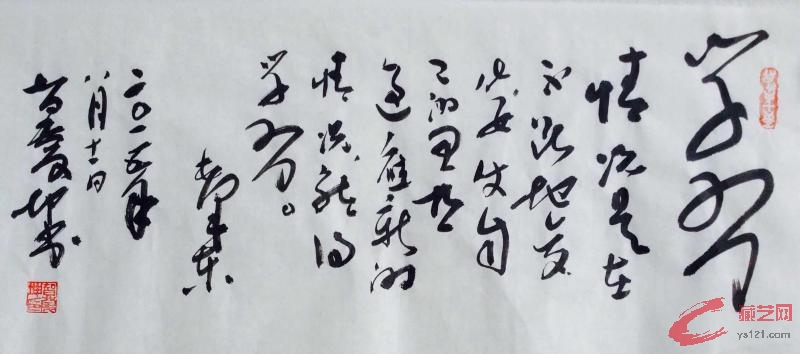 学习
情况是在
不断地变
化要使自
己的思想
适应新的
情况就得
学习。
毛泽东
二〇一五年
八月十一日
坤书
藏艺网
ys121.com